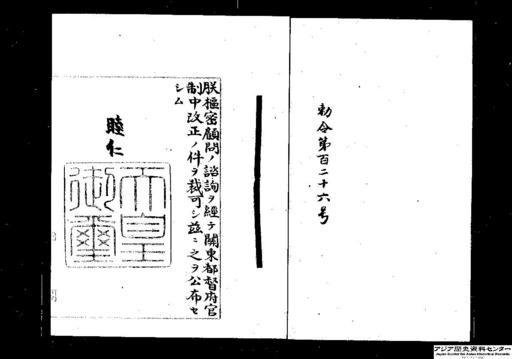 勅令第百二十六号
朕樞密顧問ノ諮詢ヲ經テ關東都督府官
制中改正ノ件ヲ裁可シ玆ニ之ヲ公布セ
シム
睦仁
天皇
御璽
アジア歴史資料センター
Japan Center for Asian Historical Records